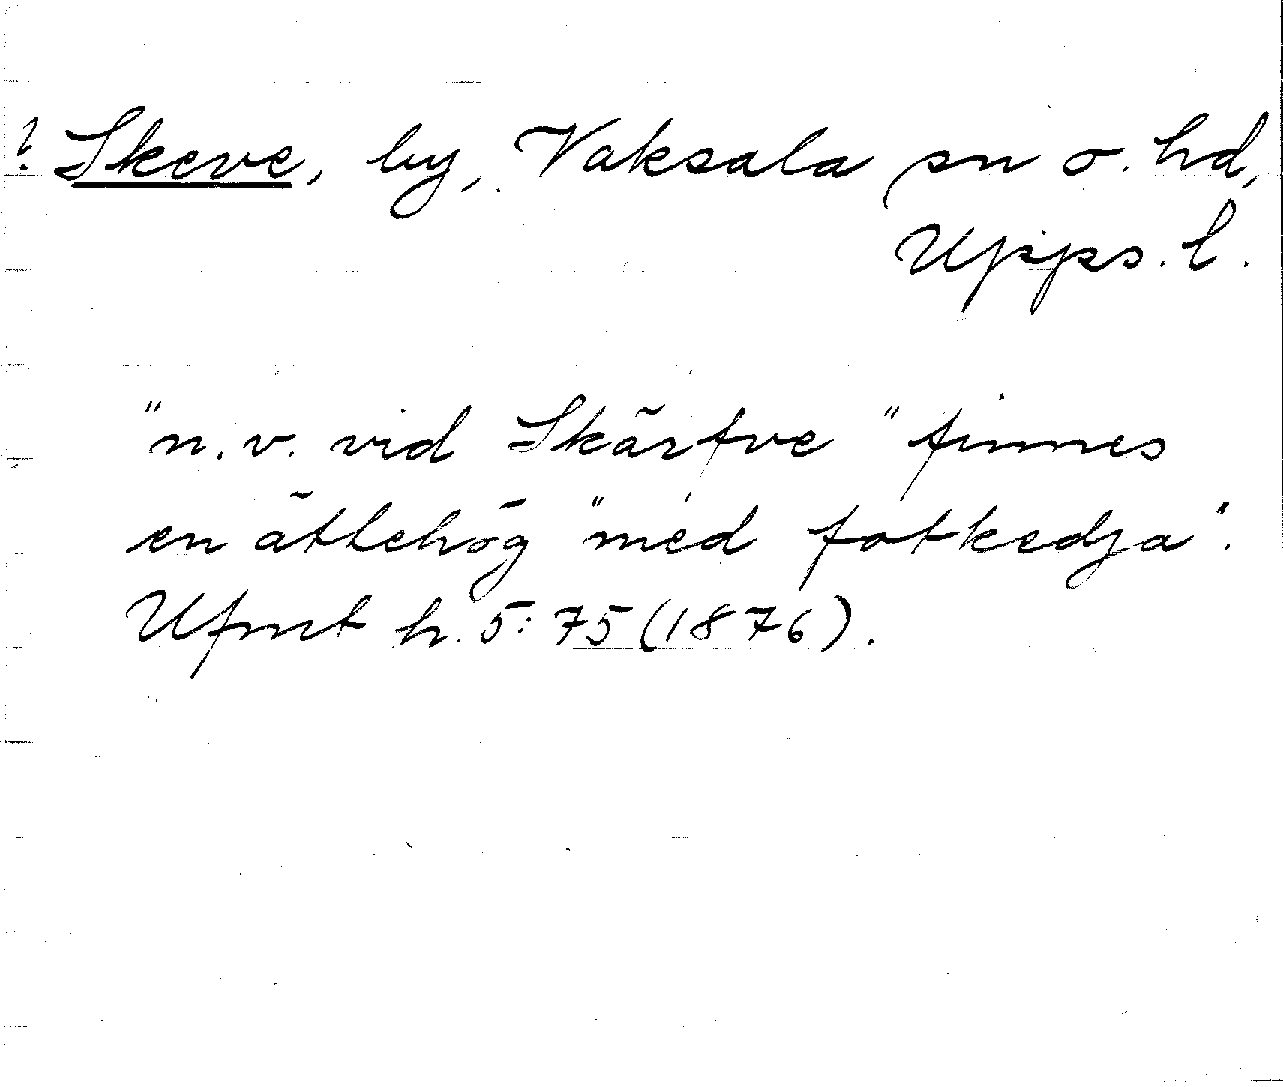 ? Skeve, by, Vaksala sn o. hd,
Upps. l.
"n. v. vid Skärfve" finnes
en ättehög "med fotkedja".
Ufmt h. 5:75 (1876).